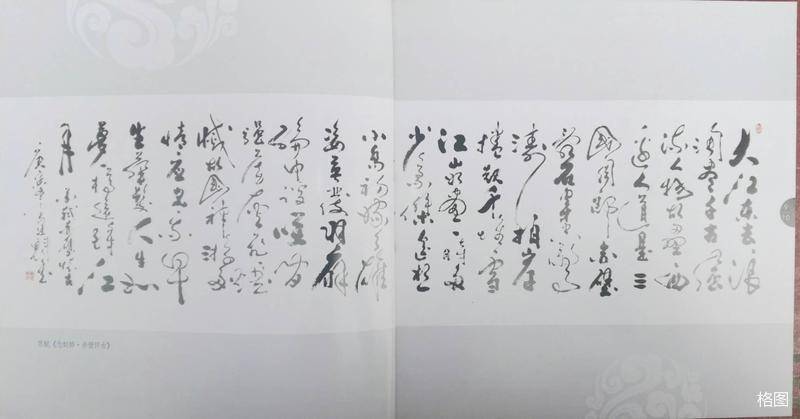 大江东去浪
淘尽千古风
流人物故垒西
边人道是三
国周郎赤壁
乱石
涛拍岸
捲起千堆雪
江山如画一时多
少豪杰遥想
小乔初嫁了雄
姿英发羽扇
纶巾谈笑间
强虏灰飞烟
故国神游多
情应笑我早
生华发人生如
梦一樽还酹江
月
《念奴娇·赤壁怀古》
格图